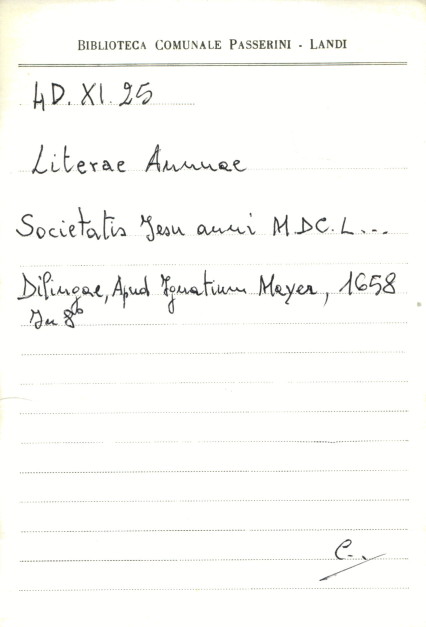 BIBLIOTECA COMUNALE PASSERINI - LANDI
4D. XI. 25
Literae Annuae
Societatis Jesu anni M.DC.L...
Dilingae, Apud Ignatium Mayer, 1658
In 8º
C.